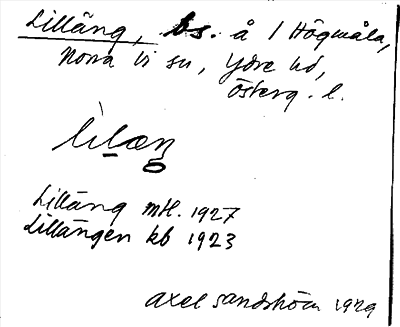 Lilläng, bs. å 1 Högmåla,
Norra Vi sn, Ydre hd,
Österg. l.
lìlæŋ
Lilläng mtl. 1927
Lillängen kb 1923
Axel Sandström 1929